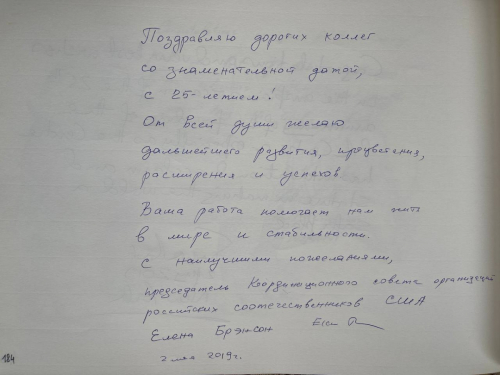 Поздравляю дорогих коллег
со знаменательной датой,
с 25-летием!
От всей души желаю
дальнейшего развития, процветания,
расширения и успехов
Ваша работа помогает нам жить
в мире и стабильности.
С наилучшими пожеланиями,
председатель Координационного совета организаций
российских соотечественников США
Елена Брэнсон
2 мая 2019г.
184